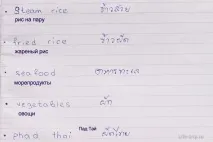 • steam rice ข้าวสวย
рис на пару
• fried rice ข้าวผัด
жареный рис
• seafood อาหารทะเล
морепродукты
• vegetables ผัก
овощи
• phad thai Пад Тай ผัดไทย